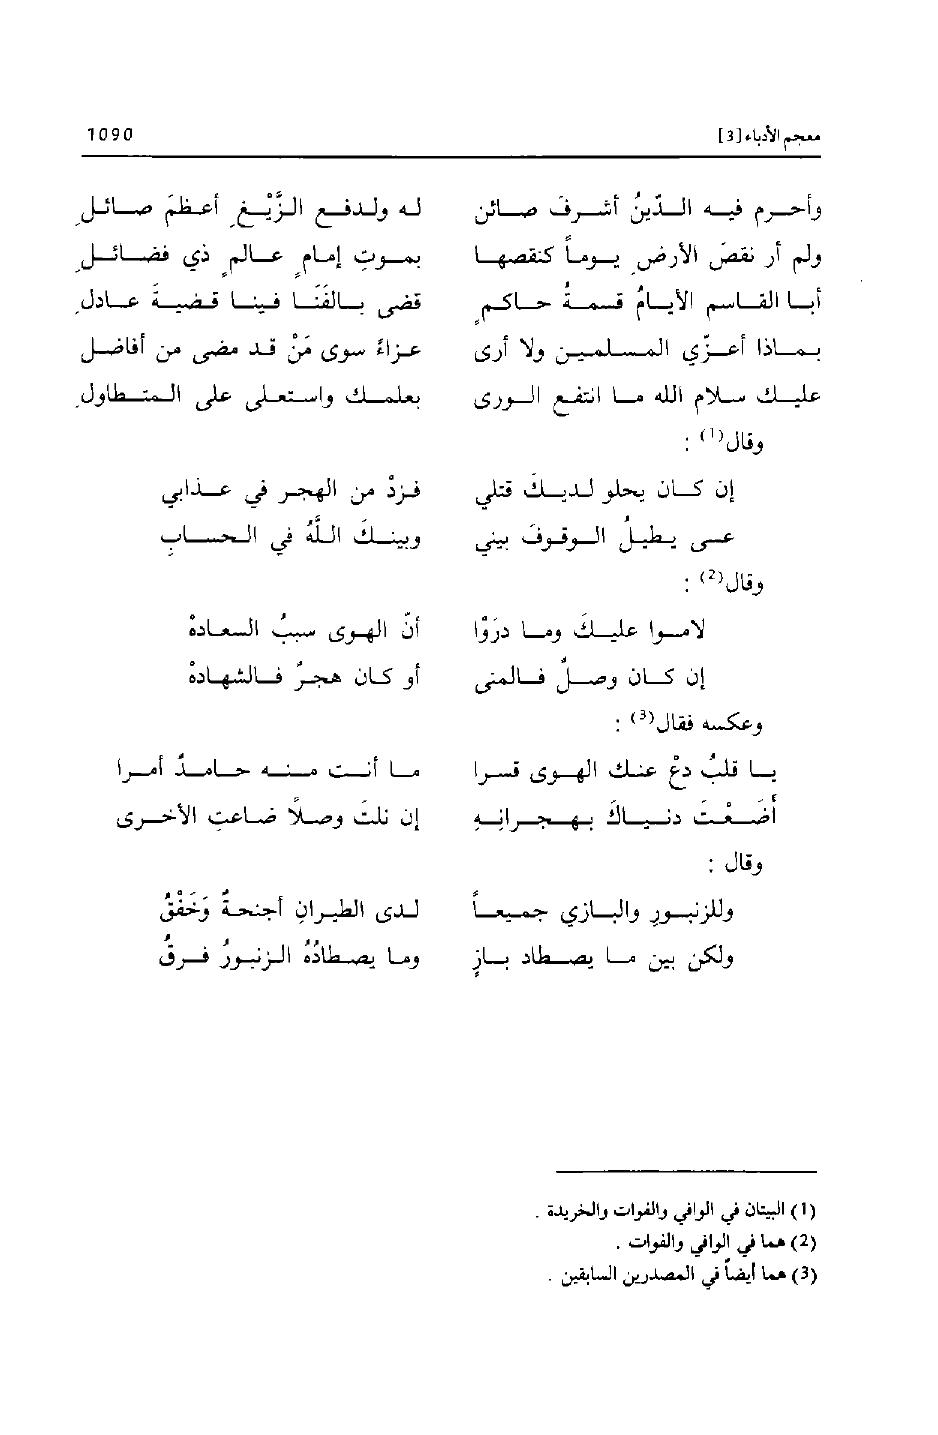 معجم الأدباء [3] 1090
وأحرم فيه الدّينُ أشرفَ صائن له ولدفع الزَّيْغِ أعظمَ صائلِ
ولم أر نقصَ الأرضِ يوماً كنقصها بموتِ إمامٍ عالمٍ ذي فضائلِ
أبا القاسم الأيامُ قسمةُ حاكمٍ قضى بالفَنَا فينا قضيةَ عادلِ
بماذا أعزّي المسلمين ولا أرى عزاءً سوى مَنْ قد مضى من أفاضل
عليك سلام الله ما انتفع الورى بعلمك واستعلى على المتطاولِ
وقال(1) :
إن كان يحلو لديكَ قتلي فزدْ من الهجر في عذابي
عسى يطيلُ الوقوفَ بيني وبينكَ اللَّهُ في الحسابِ
وقال(2) :
لاموا عليكَ وما دَرَوْا أنّ الهوى سببُ السعادهْ
إن كان وصلٌ فالمنى أو كان هجرٌ فالشهادهْ
وعكسه فقال(3) :
يا قلبُ دعْ عنك الهوى قسرا ما أنت منه حامدٌ أمرا
أَضَعْتَ دنياكَ بهجرانه إن نلتَ وصلاً ضاعت الأخرى
وقال :
وللزنبور والبازي جميعاً لدى الطيران أجنحةٌ وَخَفْقُ
ولكن بين ما يصطاد بازٍ وما يصطادُهُ الزنبورُ فرقُ
(1) البيتان في الوافي والفوات والخريدة .
(2) هما في الوافي والفوات .
(3) هما أيضاً في المصدرين السابقين .